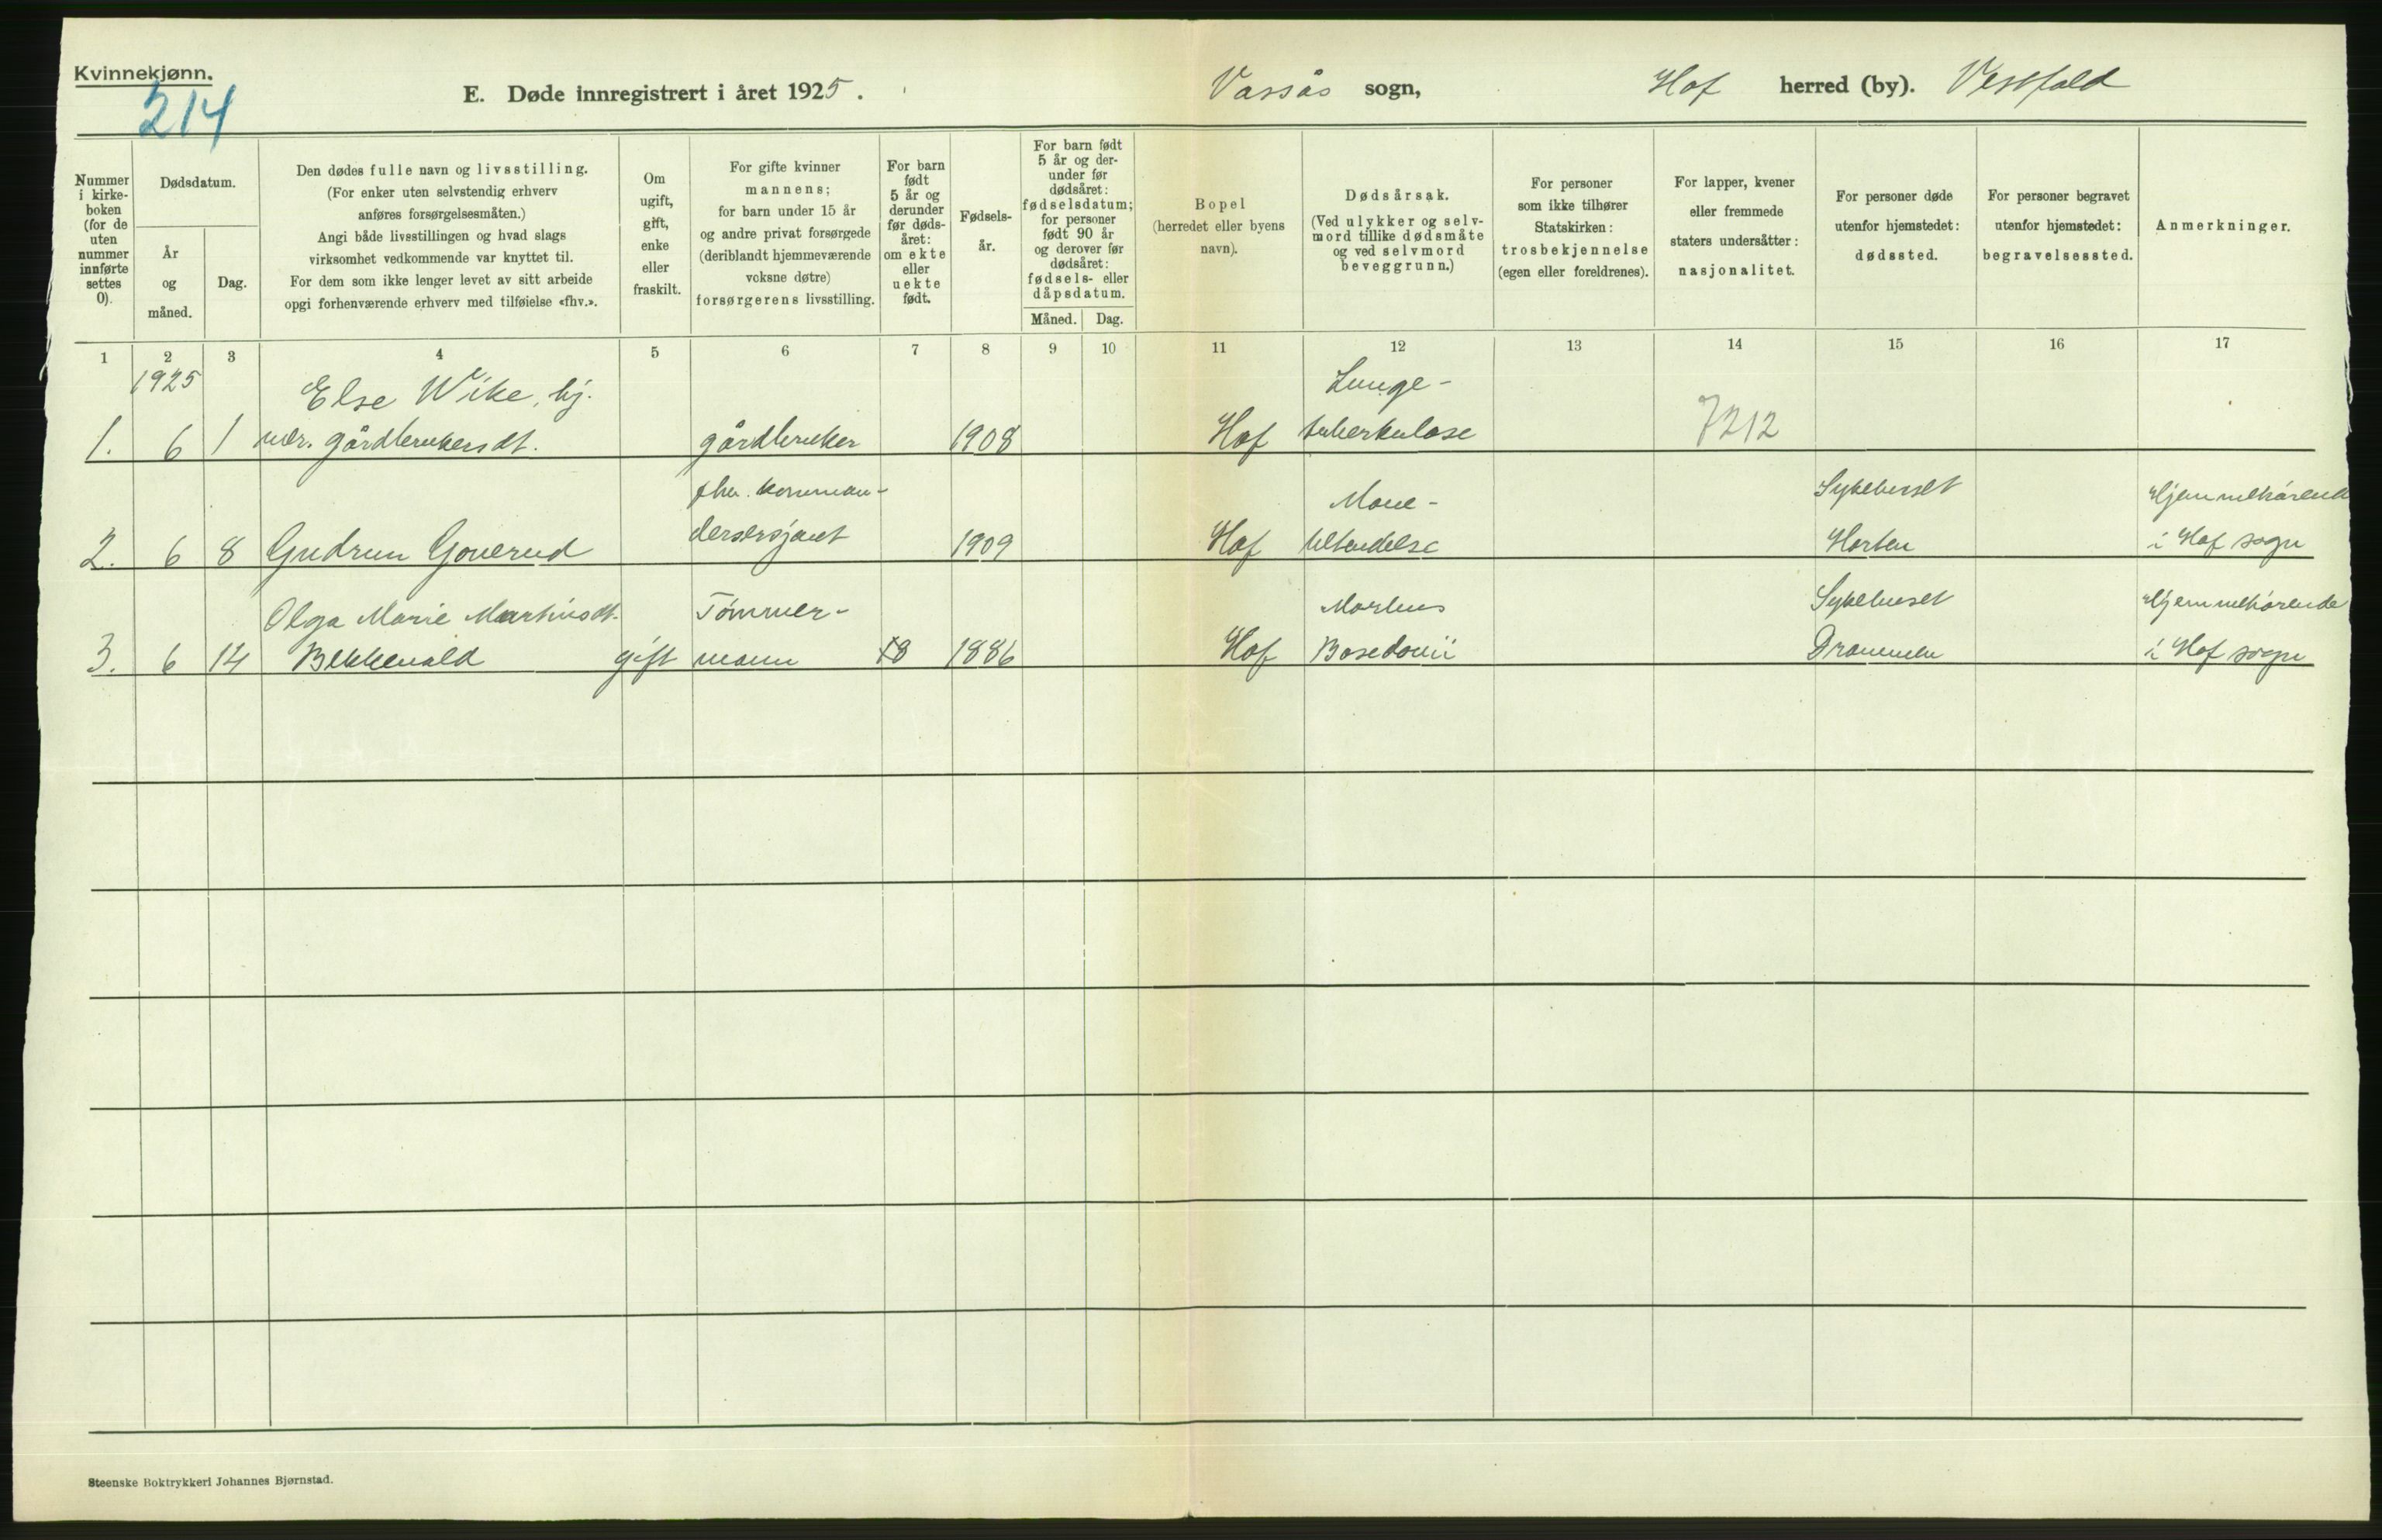 Kvinnekjønn.
214
E. Døde innregistrert i året 1925.
Vassås sogn,
Hof herred (by). Vestfold
Nummer
i kirke-
boken
(for de
uten
nummer
innførte
settes
0).
Dødsdatum.
År
og
måned.
Dag.
Den dødes fulle navn og livsstilling.
(For enker uten selvstendig erhverv
anføres forsørgelsesmåten.)
Angi både livsstillingen og hvad slags
virksomhet vedkommende var knyttet til.
For dem som ikke lenger levet av sitt arbeide
opgi forhenværende erhverv med tilføielse «fhv.».
Om
ugift,
gift,
enke
eller
fraskilt.
For gifte kvinner
mannens;
for barn under 15 år
og andre privat forsørgede
(deriblandt hjemmeværende
voksne døtre)
forsørgerens livsstilling.
For barn
født
5 år og
derunder
før døds-
året:
om ekte
eller
uekte
født.
Fødsels-
år.
For barn født
5 år og der-
under før
dødsåret:
fødselsdatum;
for personer
født 90 år
og derover før
dødsåret:
fødsels- eller
dåpsdatum.
Måned. Dag.
Bopel
(herredet eller byens
navn).
Dødsårsak.
(Ved ulykker og selv-
mord tillike dødsmåte
og ved selvmord
beveggrunn.)
For personer
som ikke tilhører
Statskirken:
trosbekjennelse
(egen eller foreldrenes).
For lapper, kvener
eller fremmede
staters undersåtter:
nasjonalitet.
For personer døde
utenfor hjemstedet:
dødssted.
For personer begravet
utenfor hjemstedet:
begravelsessted.
Anmerkninger.
1 2 3 4 5 6 7 8 9 10 11 12 13 14 15 16 17
1925 Else Wike, hj. Lunge-
1. 6 1 vær. gårdbrukersdt. gårdbruker 1908 Hof tuberkulose 7212
fhv. komman- Mave- Sykehuset Hjemmehørende
2. 6 8 Gudrun Goverud dersersjant 1909 Hof betendelse Horten i Hof sogn
Olga Marie Martinsdt. Tømmer- Morbus Sykehuset Hjemmehørende
3. 6 14 Bekkevold gift mann 1886 Hof Basedowii Drammen i Hof sogn
Steenske Boktrykkeri Johannes Bjørnstad.